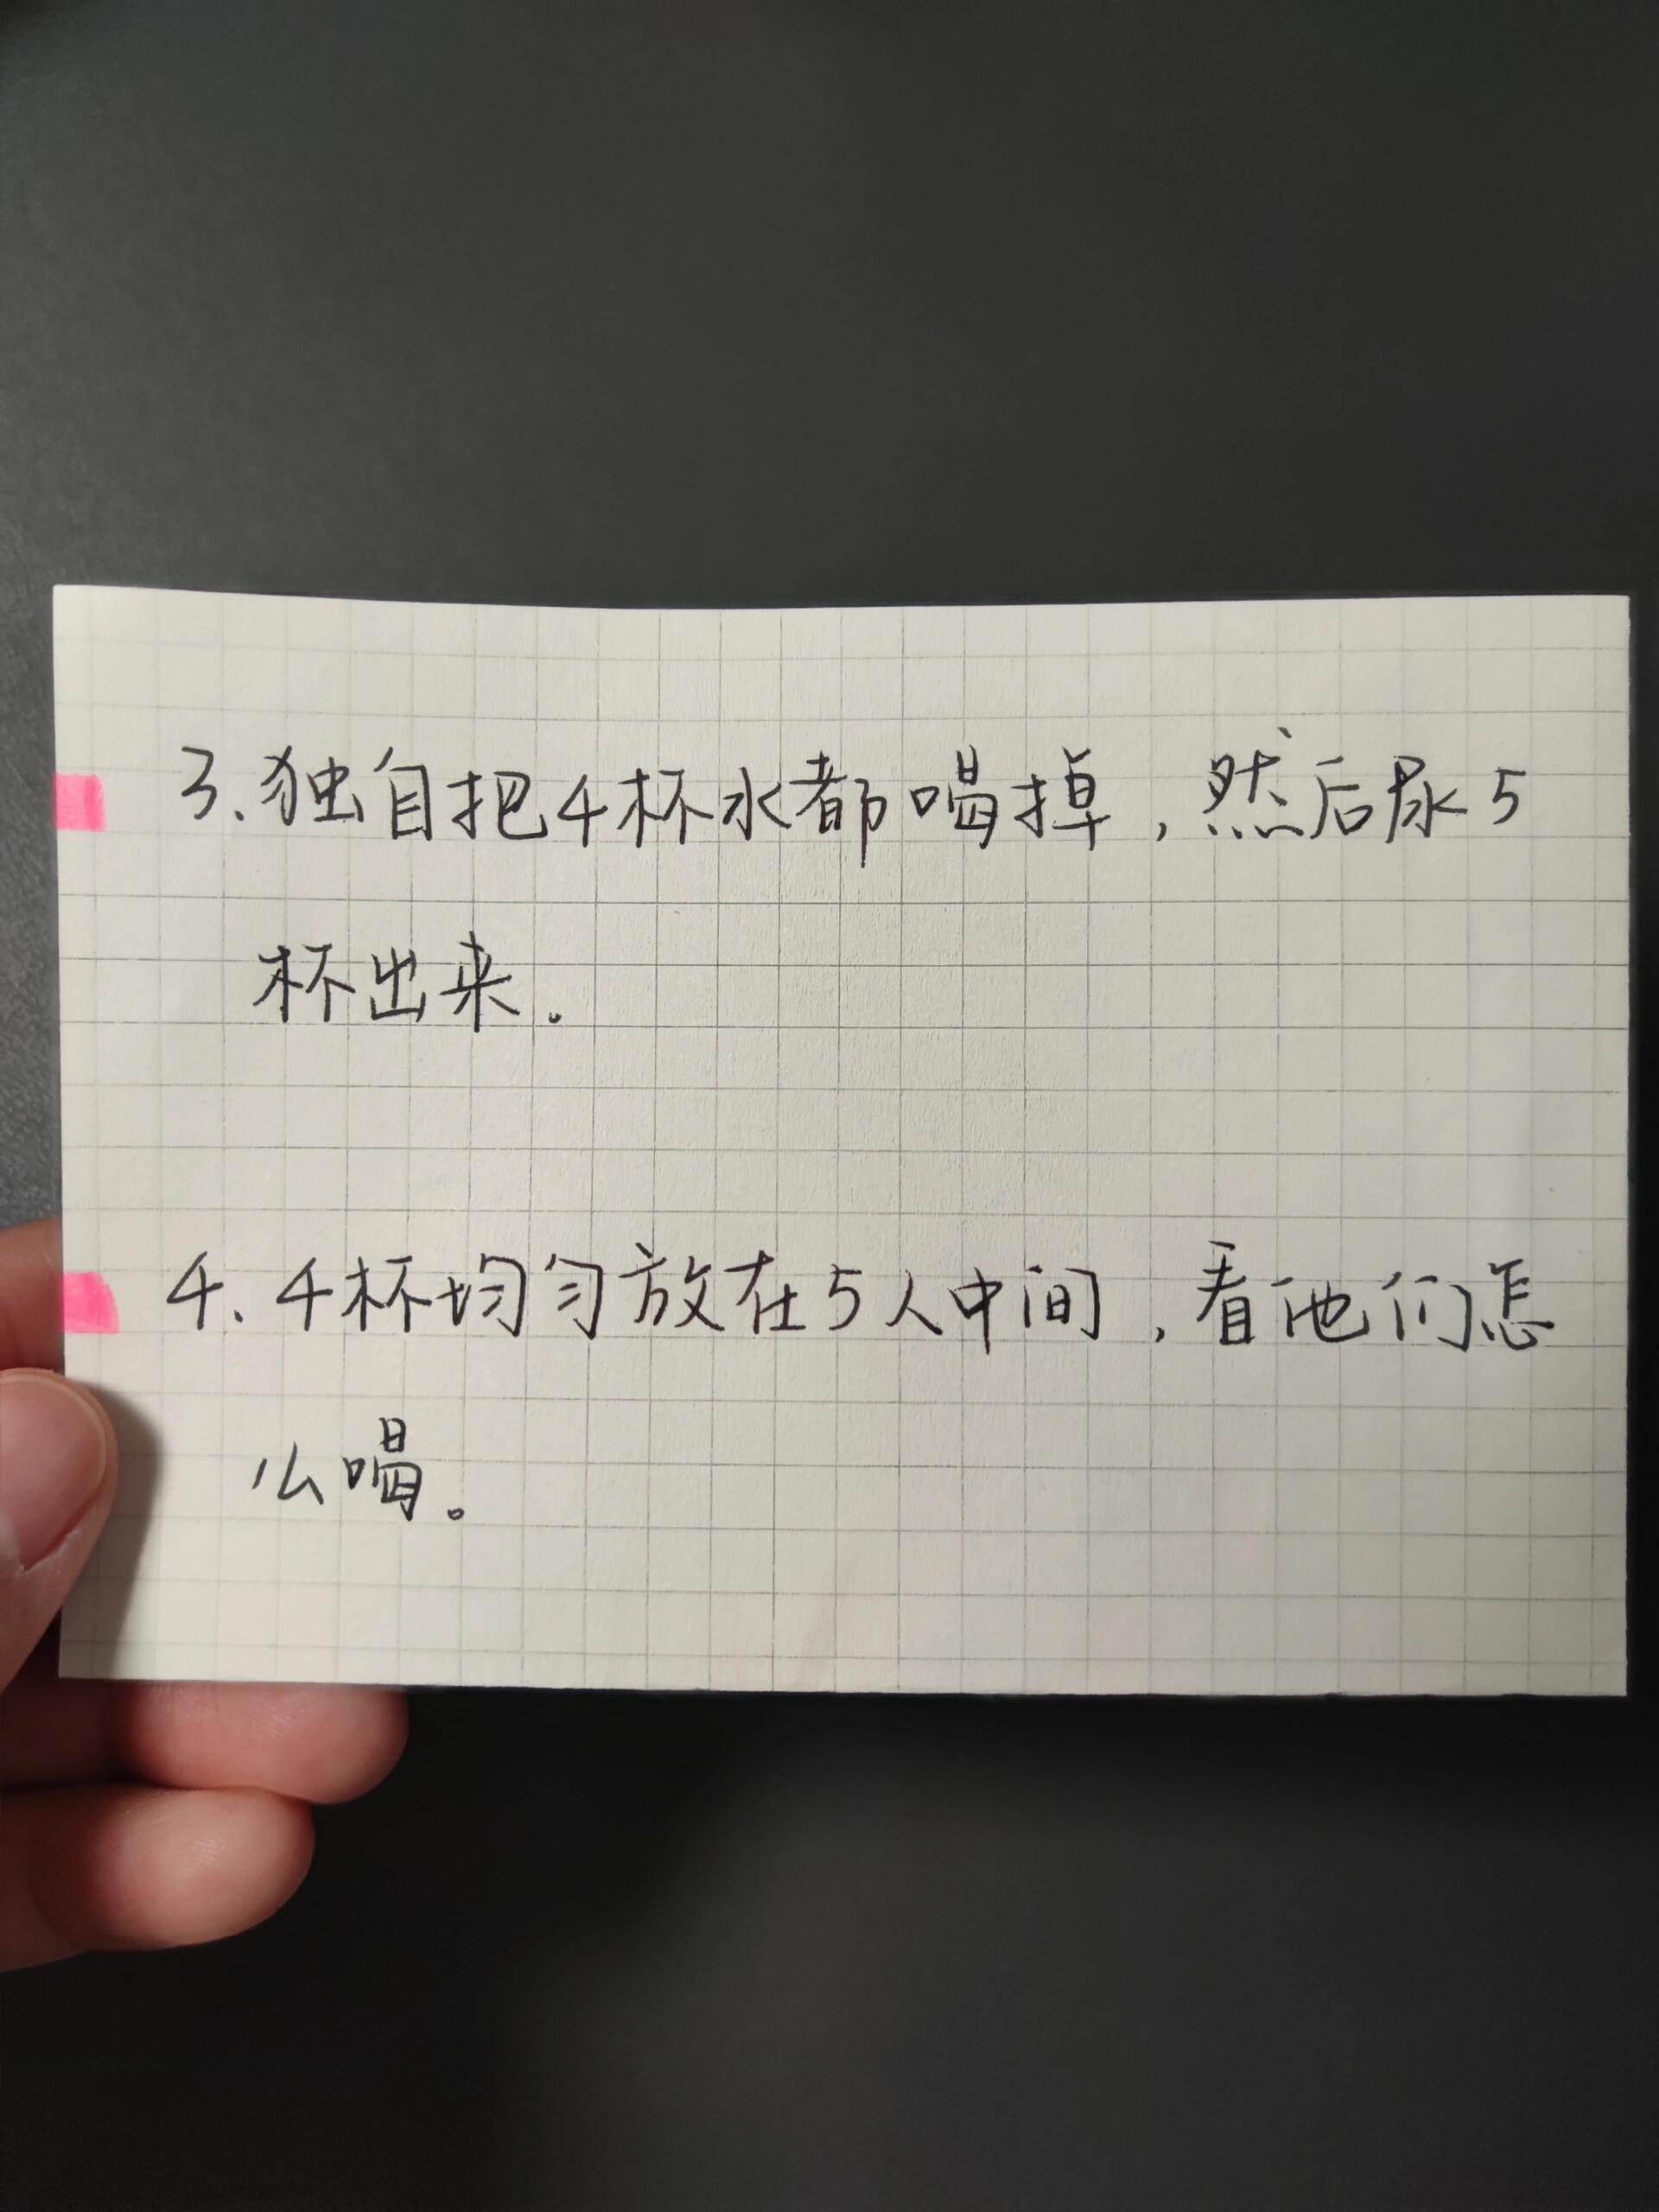 3.独自把4杯水都喝掉,然后尿5
杯出来.
4.4杯均匀放在5人中间,看他们怎
么喝。